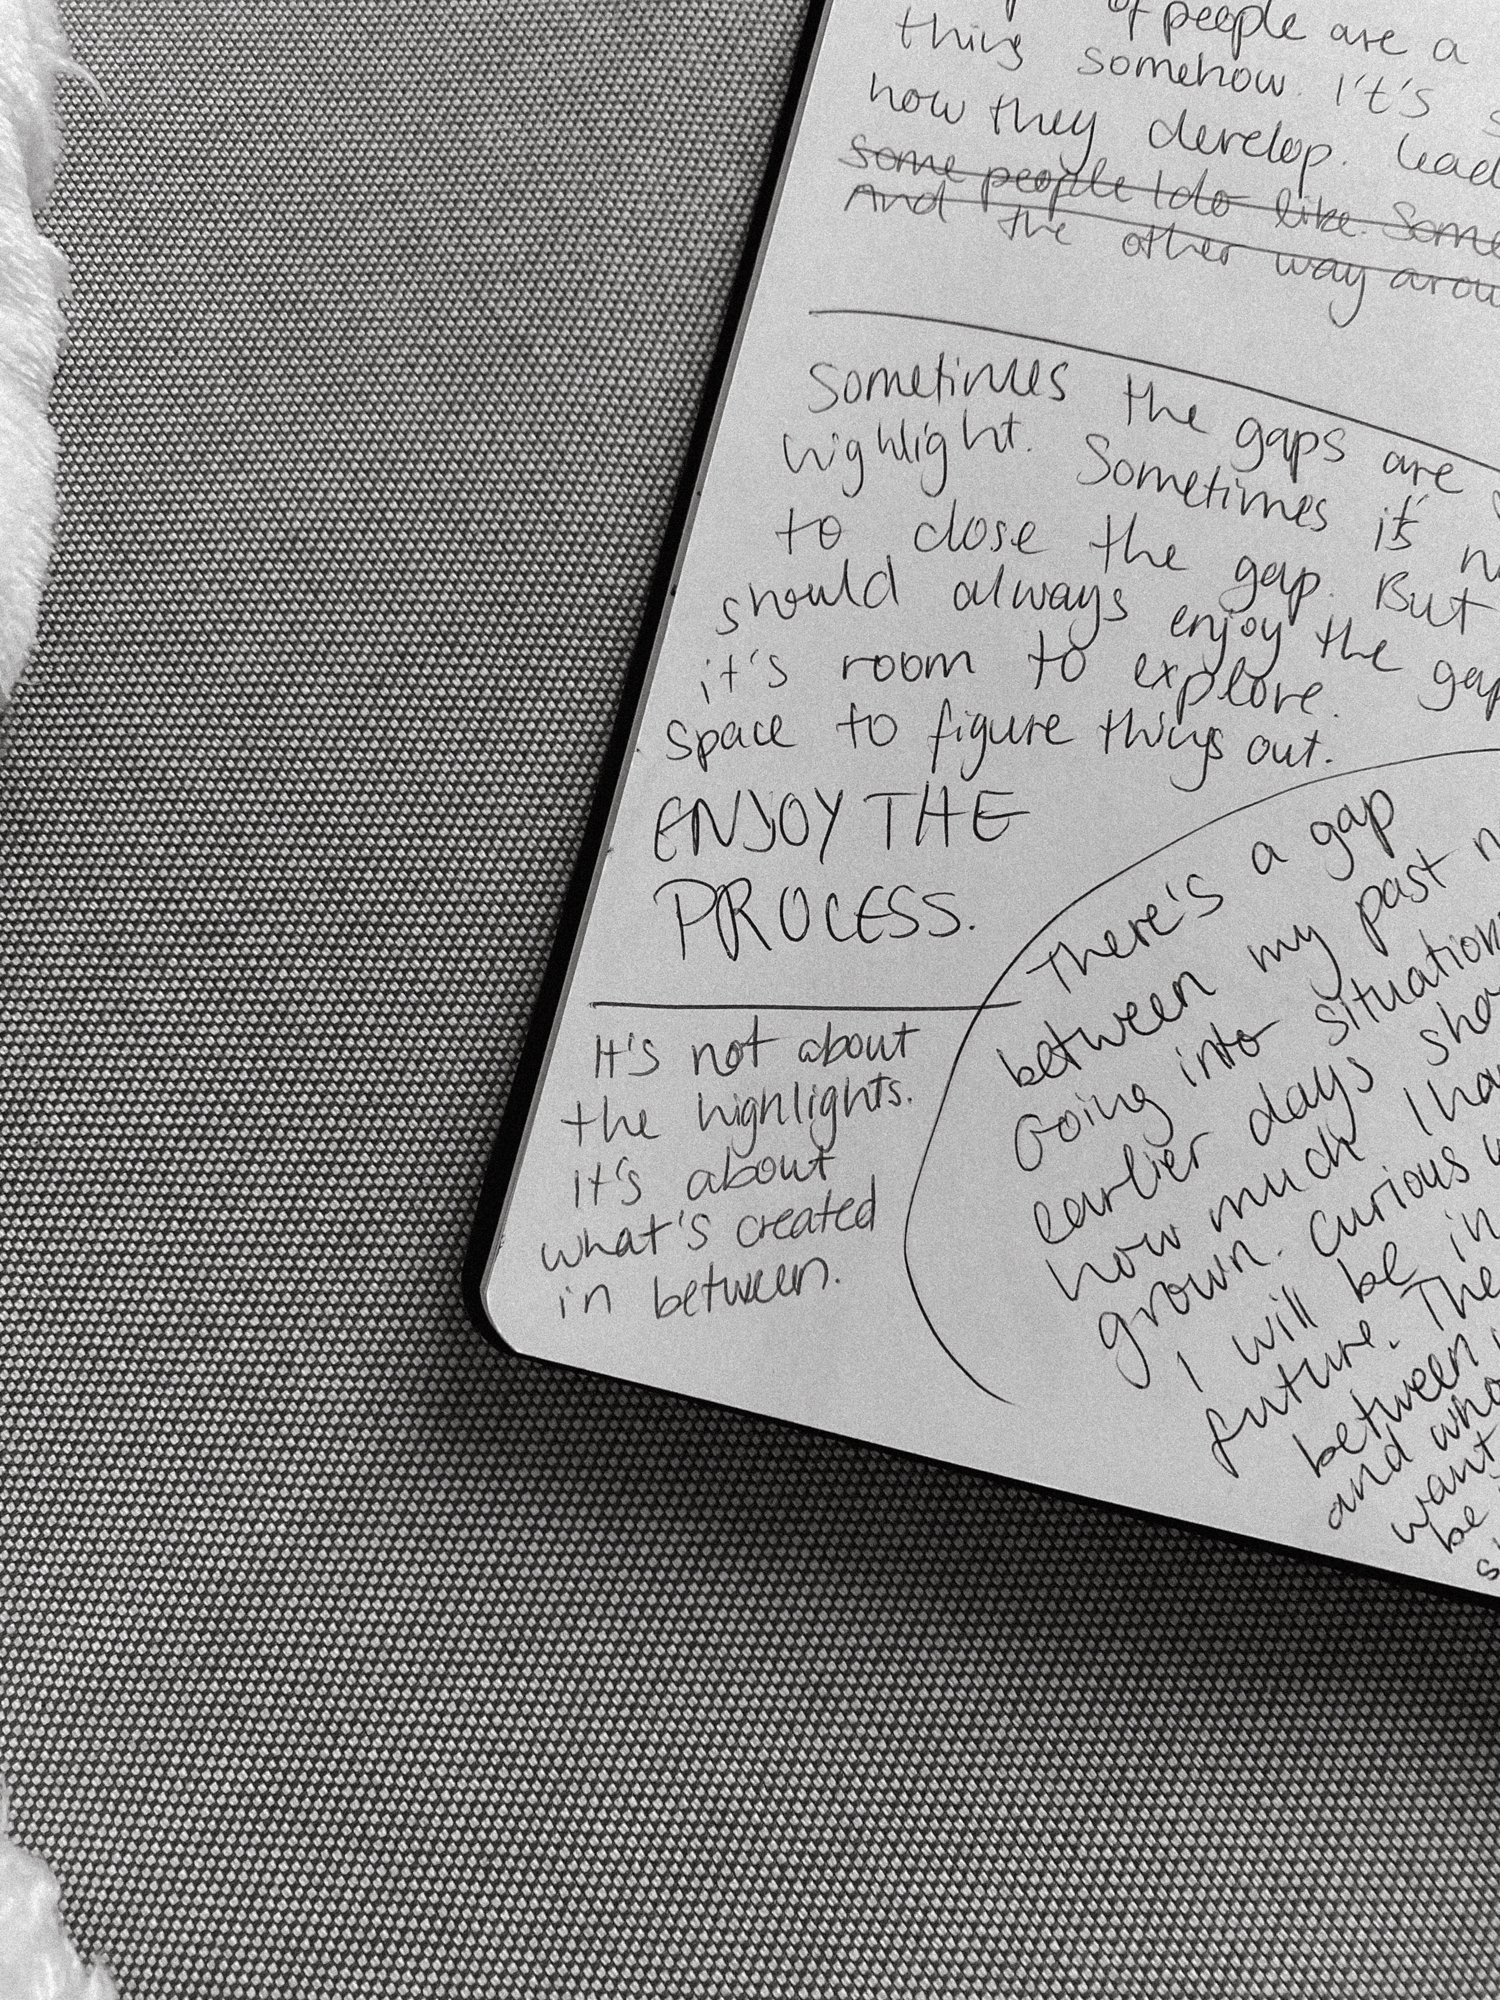 of people are a
thing somehow. It's
how they develop.
some people I do like. Some
And the other way
Sometimes the gaps are
highlight. Sometimes it's
to close the gap. But
should always enjoy the
it's room to explore.
space to figure things out.
ENJOY THE
PROCESS.
It's not about
the highlights.
it's about
what's created
in between.
There's a gap
between my past
Going into
earlier days
how much I
grown. Curious
I will be in
future.
between
and
want
be